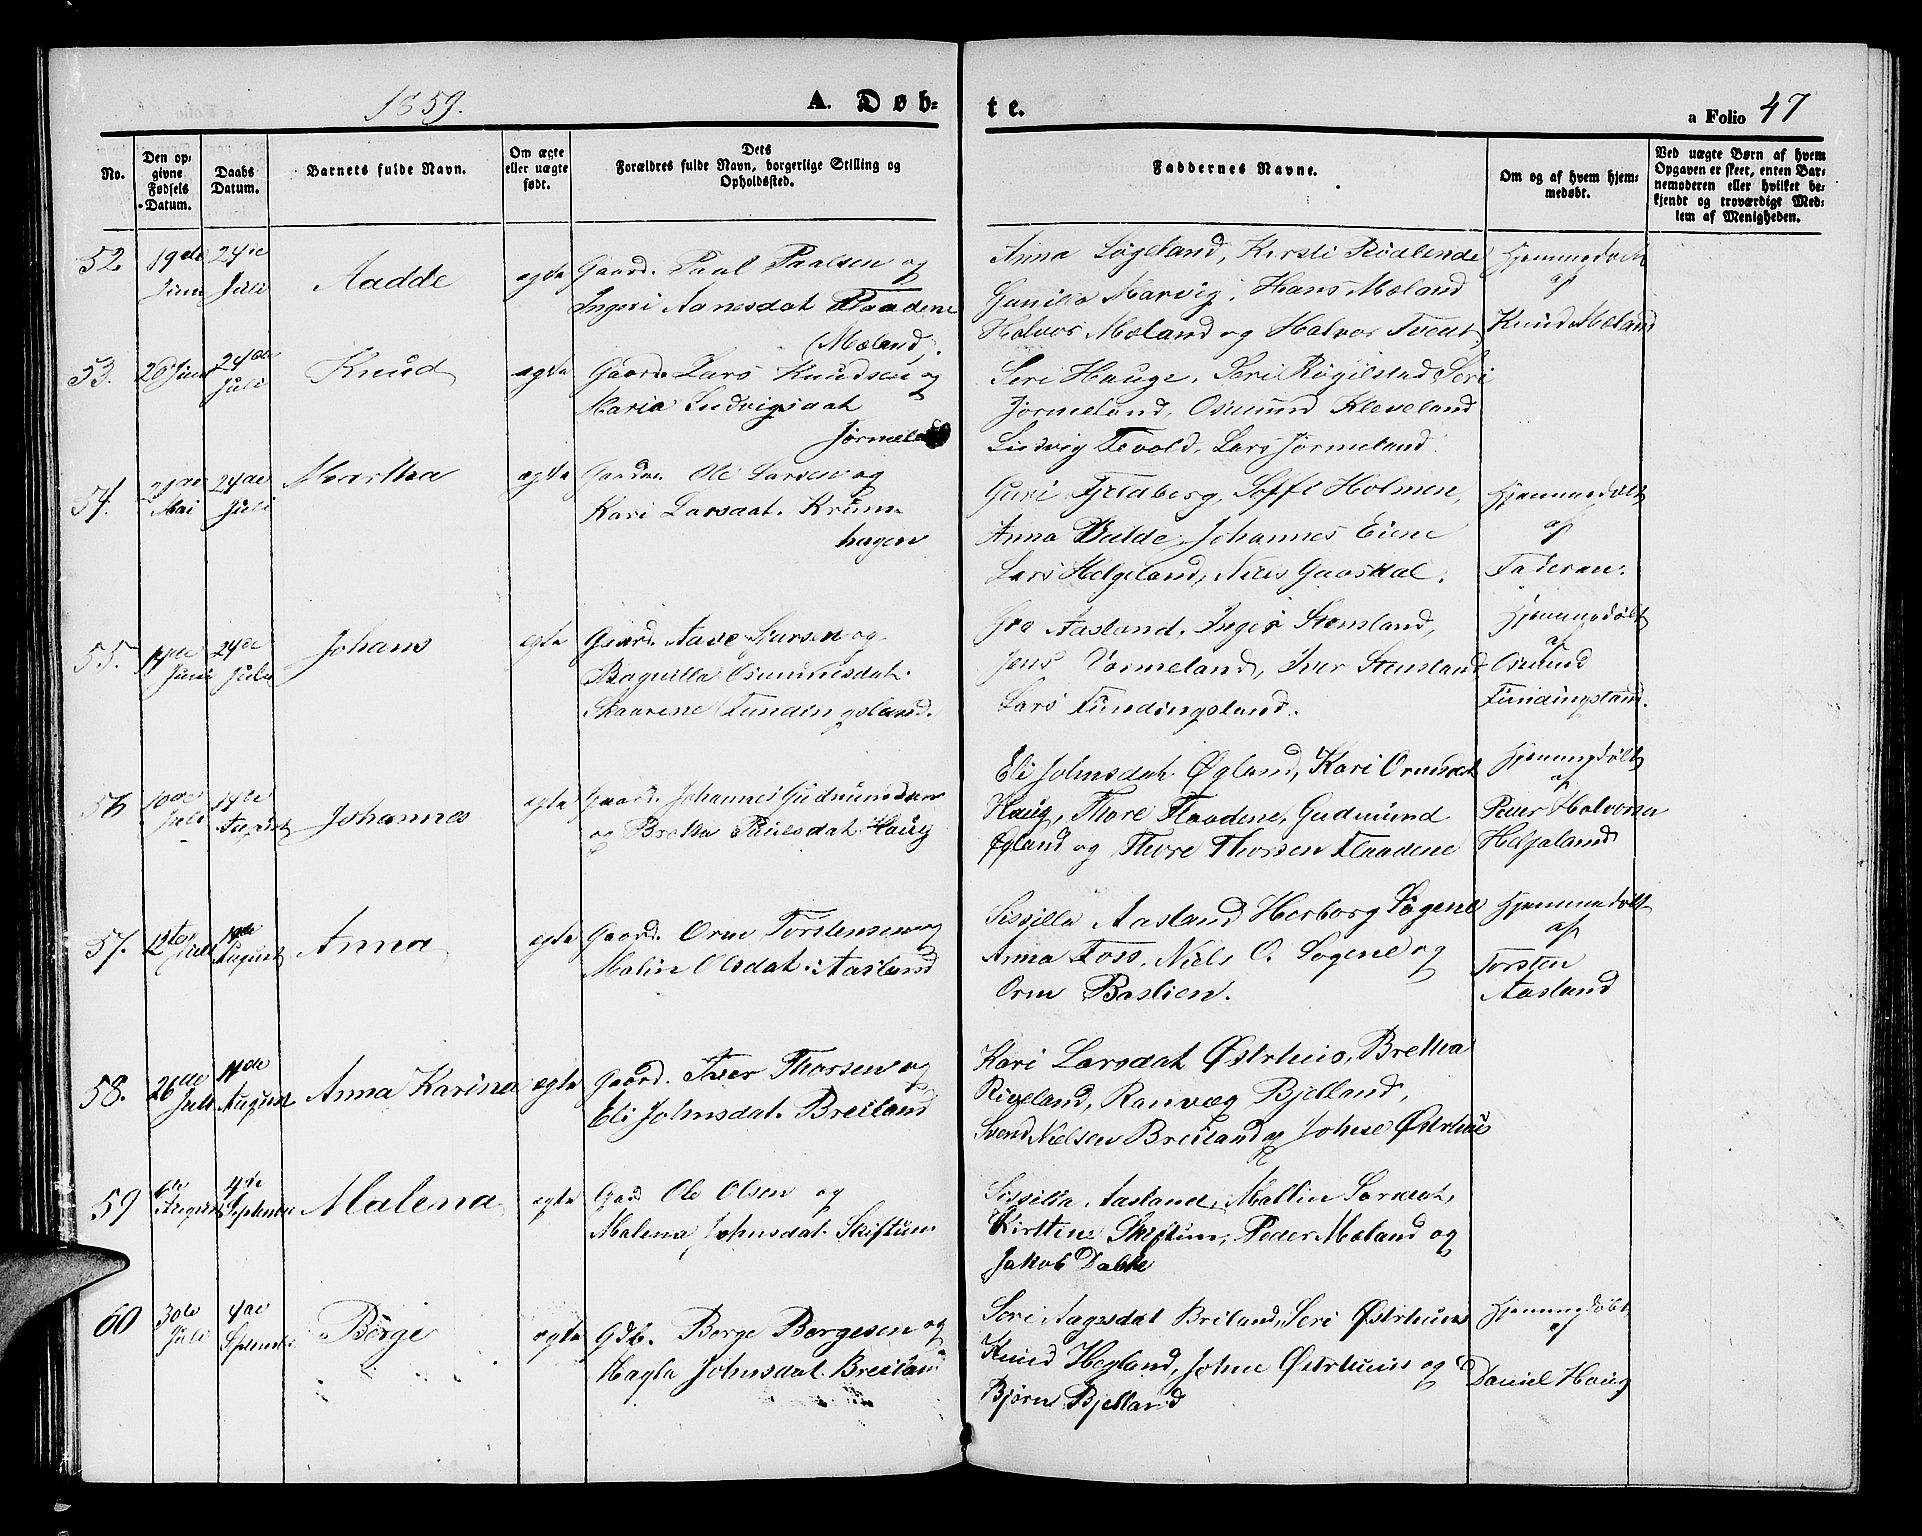 1859.
A. Døb-
te.
a Folio 47
No.
Den opgivne Fødsels Datum.
Daabs Datum.
Barnets fulde Navn.
Om ægte eller uægte født.
Dets
Forældres fulde Navn, borgerlige Stilling og
Opholdssted.
Faddernes Navne.
Om og af hvem hjemmedøbt.
Ved uægte Børn af hvem
Opgaven er skeet, enten Bar-
nemoderen eller hvilket be-
kjendt og troværdigt Med-
lem af Menigheden.
52. 19de Juni 24de Juli Aadde egte Gaard. Paul Paalsen og
Ingeri Aanesdat Flaadene
(Mæland.
Anna Løgeland, Kirsti
Gunilla Marvig, Hans Mæland
Halvor Mæland og Halvor Tveit
Hjemmedøbt
af
Knud Mæland
53. 20 Juni 24de Juli Knud egte Gaard. Lars Knudsen og
Maria Ludvigsdat
Jørmeland
Seri Hauge, Seri Røgilstad Seri
Jørmeland, Osmund Kleveland
Ludvig Tevold, Lars Jørmeland.
54. Mai 24de Juli Martha egte Gaardm. Ole Larsen og
Kari Larsdat. Krum-
hagen
Guri Fjeldberg, Soffi Holmen,
Anna Dalde, Johannes Eiene
Lars Helgeland, Niels Gaasdal.
Hjemmedøbt
af
Faderen.
55. Juni 24de Juli Johans egte Gaard. Aave Sjursen og
Baquilla Osmundsdat.
Skaarene Fundingsland.
Gro Aasland, Inger Stensland,
Jens Vormeland, Iver Stensland
Lars Fundingsland.
Hjemmedøbt
af
Osmund
Fundingsland.
56 10de Juli 14de August Johannes egte Gaard. Johannes Gudmundsen
og Bretha Paulsdat. Haug
Eli Johnsdat Øgland, Kari Ormsdat
Haug, Thore Flaadene, Gudmund
Øgland og Thore Thorsen Flaadene
Hjemmedøbt
af
Peder Halvorsen
Helgaland
57. 12te Juli August Anna egte Gaard. Orm Torstensen og
Malin Olsdat. Aasland
Sissilla Aasland Herborg Søgene
Anna Foss, Niels O. Sogene og
Orm Bastien.
Hjemmedøbt
af
Torsten
Aasland
58. 26de Juli August Anna Karina egte Gaard. Iver Thorsen og
Eli Johnsdat. Breiland
Kari Larsdat Østrhus, Bretha
Riveland, Ranvæg Bjelland,
Svend Nielsen Breiland og Johne Østrhus
59 6te August 4de September Malena egte Gaard Ole Olsen og
Malena Johnsdat. Skiftun
Sissilla Aasland, Mallin
Kirstine Skiftun, Peder Mæland og
Jakob Dalke
60 30te Juli 4de September Børge egte Gdb. Børge Børgesen og
Hagla Johnsdat. Breiland
Seri Aagesdat Breiland, Seri Østrhuus
Knud Hegland, Johne Østrhuus og
Bjørn Bjelland
Hjemmedøbt
af
Daniel Haug